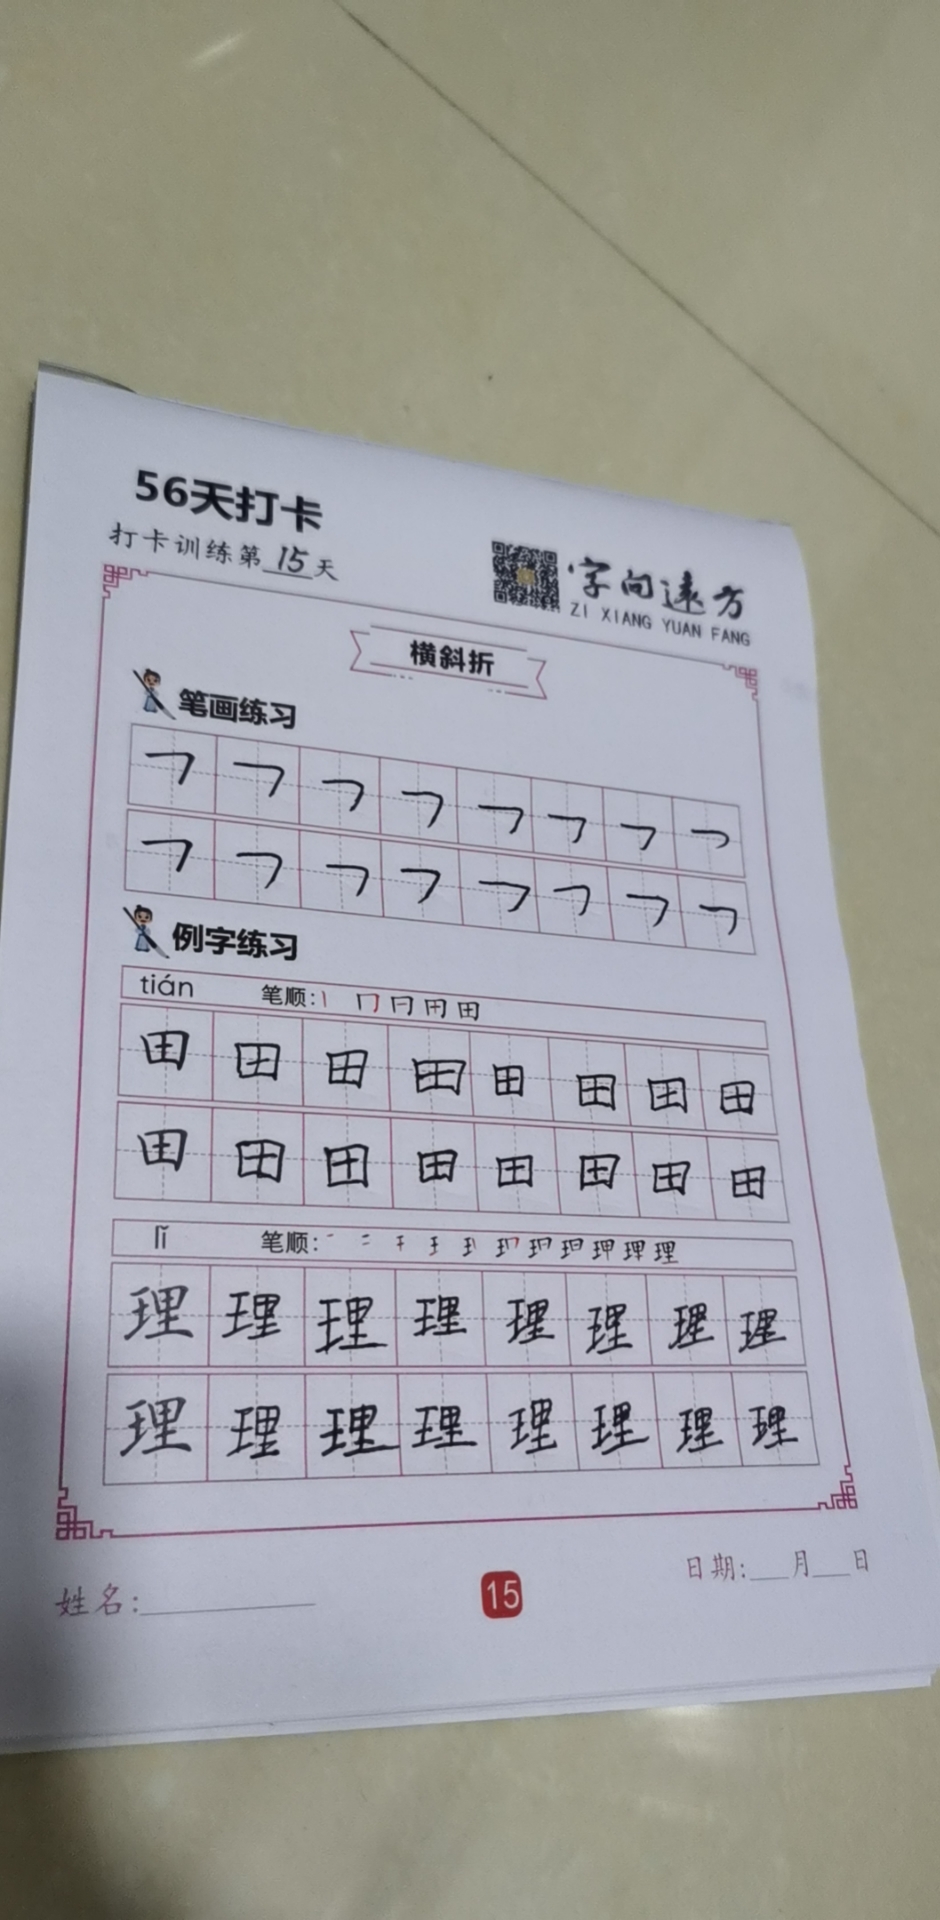 56天打卡
打卡训练第15天
字向远方
ZI XIANG YUAN FANG
横斜折
笔画练习
㇇ ㇇ ㇇ ㇇ ㇇ ㇇ ㇇ ㇇
㇇ ㇇ ㇇ ㇇ ㇇ ㇇ ㇇ ㇇
例字练习
tián 笔顺: 丨 冂 冃 用 田
田 田 田 田 田 田 田 田
田 田 田 田 田 田 田 田
lǐ 笔顺:
理 理 理 理 理 理 理 理
理 理 理 理 理 理 理 理
姓名:
15
日期: 月 日